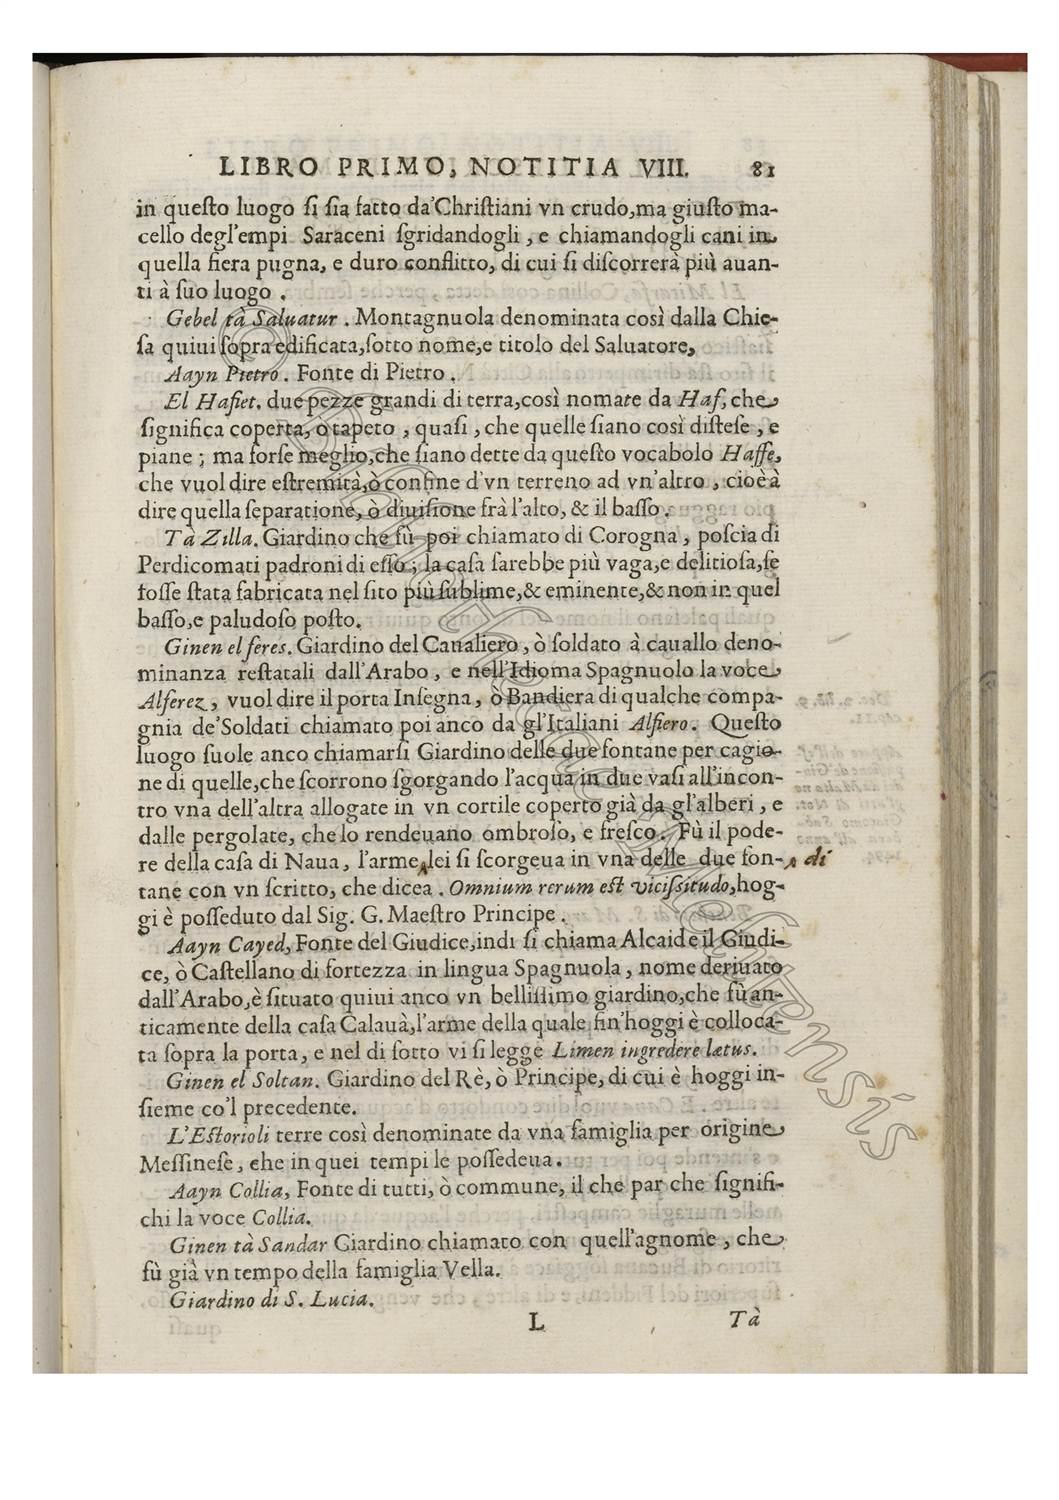 LIBRO PRIMO, NOTITIA VIII. 81
in queſto luogo ſi ſia fatto da'Chriſtiani vn crudo,ma giuſto ma-
cello degl'empi Saraceni ſgridandogli , e chiamandogli cani in
quella fiera pugna, e duro conflitto, di cui ſi diſcorrerà più auan-
ti à ſuo luogo .
Gebel tà Saluatur . Montagnuola denominata così dalla Chie-
ſa quiui ſopra edificata,ſotto nome,e titolo del Saluatore,
Aayn Pietro . Fonte di Pietro .
El Hafiet. due pezze grandi di terra,così nomate da Haf, che
ſignifica coperta, ò tapeto , quaſi , che quelle ſiano così diſteſe , e
piane ; ma forſe meglio,che ſiano dette da queſto vocabolo Haffe,
che vuol dire eſtremità,ò confine d'vn terreno ad vn'altro , cioè à
dire quella ſeparatione, ò diuiſione frà l'alto, & il baſſo .
Tà Zilla. Giardino che fù poi chiamato di Corogna , poſcia di
Perdicomati padroni di eſſo ; la caſa ſarebbe più vaga,e delitioſa,ſe
foſſe ſtata fabricata nel ſito più ſublime,& eminente,& non in quel
baſſo,e paludoſo poſto.
Ginen el feres. Giardino del Caualiero , ò ſoldato à cauallo deno-
minanza reſtatali dall'Arabo , e nell'Idioma Spagnuolo la voce
Alferez , vuol dire il porta Inſegna , ò Bandiera di qualche compa-
gnia de'Soldati chiamato poi anco da gl'Italiani Alfiero . Queſto
luogo ſuole anco chiamarſi Giardino delle due fontane per cagio-
ne di quelle,che ſcorrono ſgorgando l'acqua in due vaſi all'incon-
tro vna dell'altra allogate in vn cortile coperto già da gl'alberi , e
dalle pergolate, che lo rendeuano ombroſo, e freſco . Fù il pode-
re della caſa di Naua , l'arme ^ lei ſi ſcorgeua in vna delle due fon- ^ di
tane con vn ſcritto, che dicea . Omnium rerum eſt viciſsitudo,hog-
gi è poſſeduto dal Sig. G. Maeſtro Principe .
Aayn Cayed, Fonte del Giudice,indi ſi chiama Alcaide il Giudi-
ce, ò Caſtellano di fortezza in lingua Spagnuola , nome deriuato
dall'Arabo,è ſituato quiui anco vn belliſſimo giardino,che fù an-
ticamente della caſa Calauà,l'arme della quale fin'hoggi è colloca-
ta ſopra la porta, e nel di ſotto vi ſi legge Limen ingredere lætus.
Ginen el Soltan. Giardino del Rè, ò Principe, di cui è hoggi in-
ſieme co'l precedente.
L'Eſtorioli terre così denominate da vna famiglia per origine
Meſſineſe , che in quei tempi le poſſedeua .
Aayn Collia, Fonte di tutti, ò commune, il che par che ſignifi-
chi la voce Collia.
Ginen tà Sandar Giardino chiamato con quell'agnome , che
fù già vn tempo della famiglia Vella.
Giardino di S. Lucia.
L Tà
© Bibliotheca Melitensis